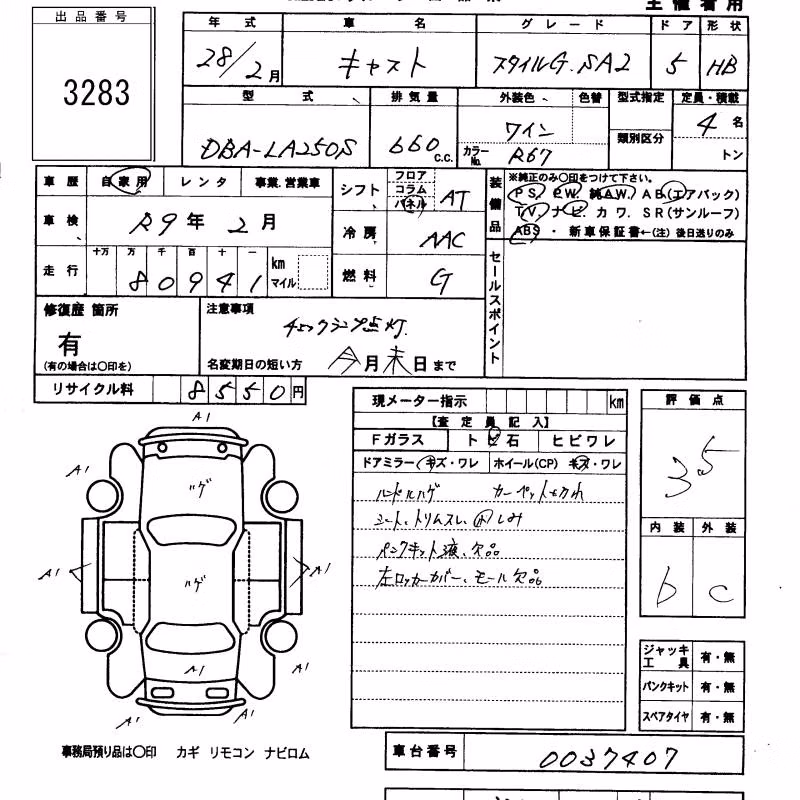 主催者用
出品番号
3283
年式 車名 グレード ドア 形状
28/2月 キャスト スタイルG.SA2 5 HB
型式 排気量 外装色 色替 型式指定 定員・積載
DBA-LA250S 660 c.c. ワイン 4名
カラーNo. R67 類別区分 トン
車歴 自家用 レンタ 事業.営業車
車検 R9年2月
シフト フロア コラム パネル AT
冷房 AAC
燃料 G
走行 十万 万 千 百 十 一
80941 km マイル
装備品
※純正のみ〇印をつけて下さい。
PS. P.W. 純AW. AB(エアバック)
TV. ナビ カワ. SR(サンルーフ)
ABS ・ 新車保証書←(注)後日送りのみ
セールスポイント
修復歴 箇所
有
(有の場合は〇印を)
注意事項
チェックランプ点灯.
名変期日の短い方 今月末日まで
リサイクル料 8550円
現メーター指示 km
【査定員記入】
Fガラス トビ石 ヒビワレ
ドアミラー キズ・ワレ ホイール(CP) キズ・ワレ
ハンドルハゲ カーペット切れ
シート、トリムスレ、しみ
パンクキット液、欠品
左ロッカーカバー、モール欠品
評価点
3.5
内装 外装
b c
A1
A1 ハゲ A1
A1 ハゲ A1
A1 A1
A1 A1
ジャッキ工具 有・無
パンクキット 有・無
スペアタイヤ 有・無
事務局預り品は〇印 カギ リモコン ナビロム
車台番号 0037407